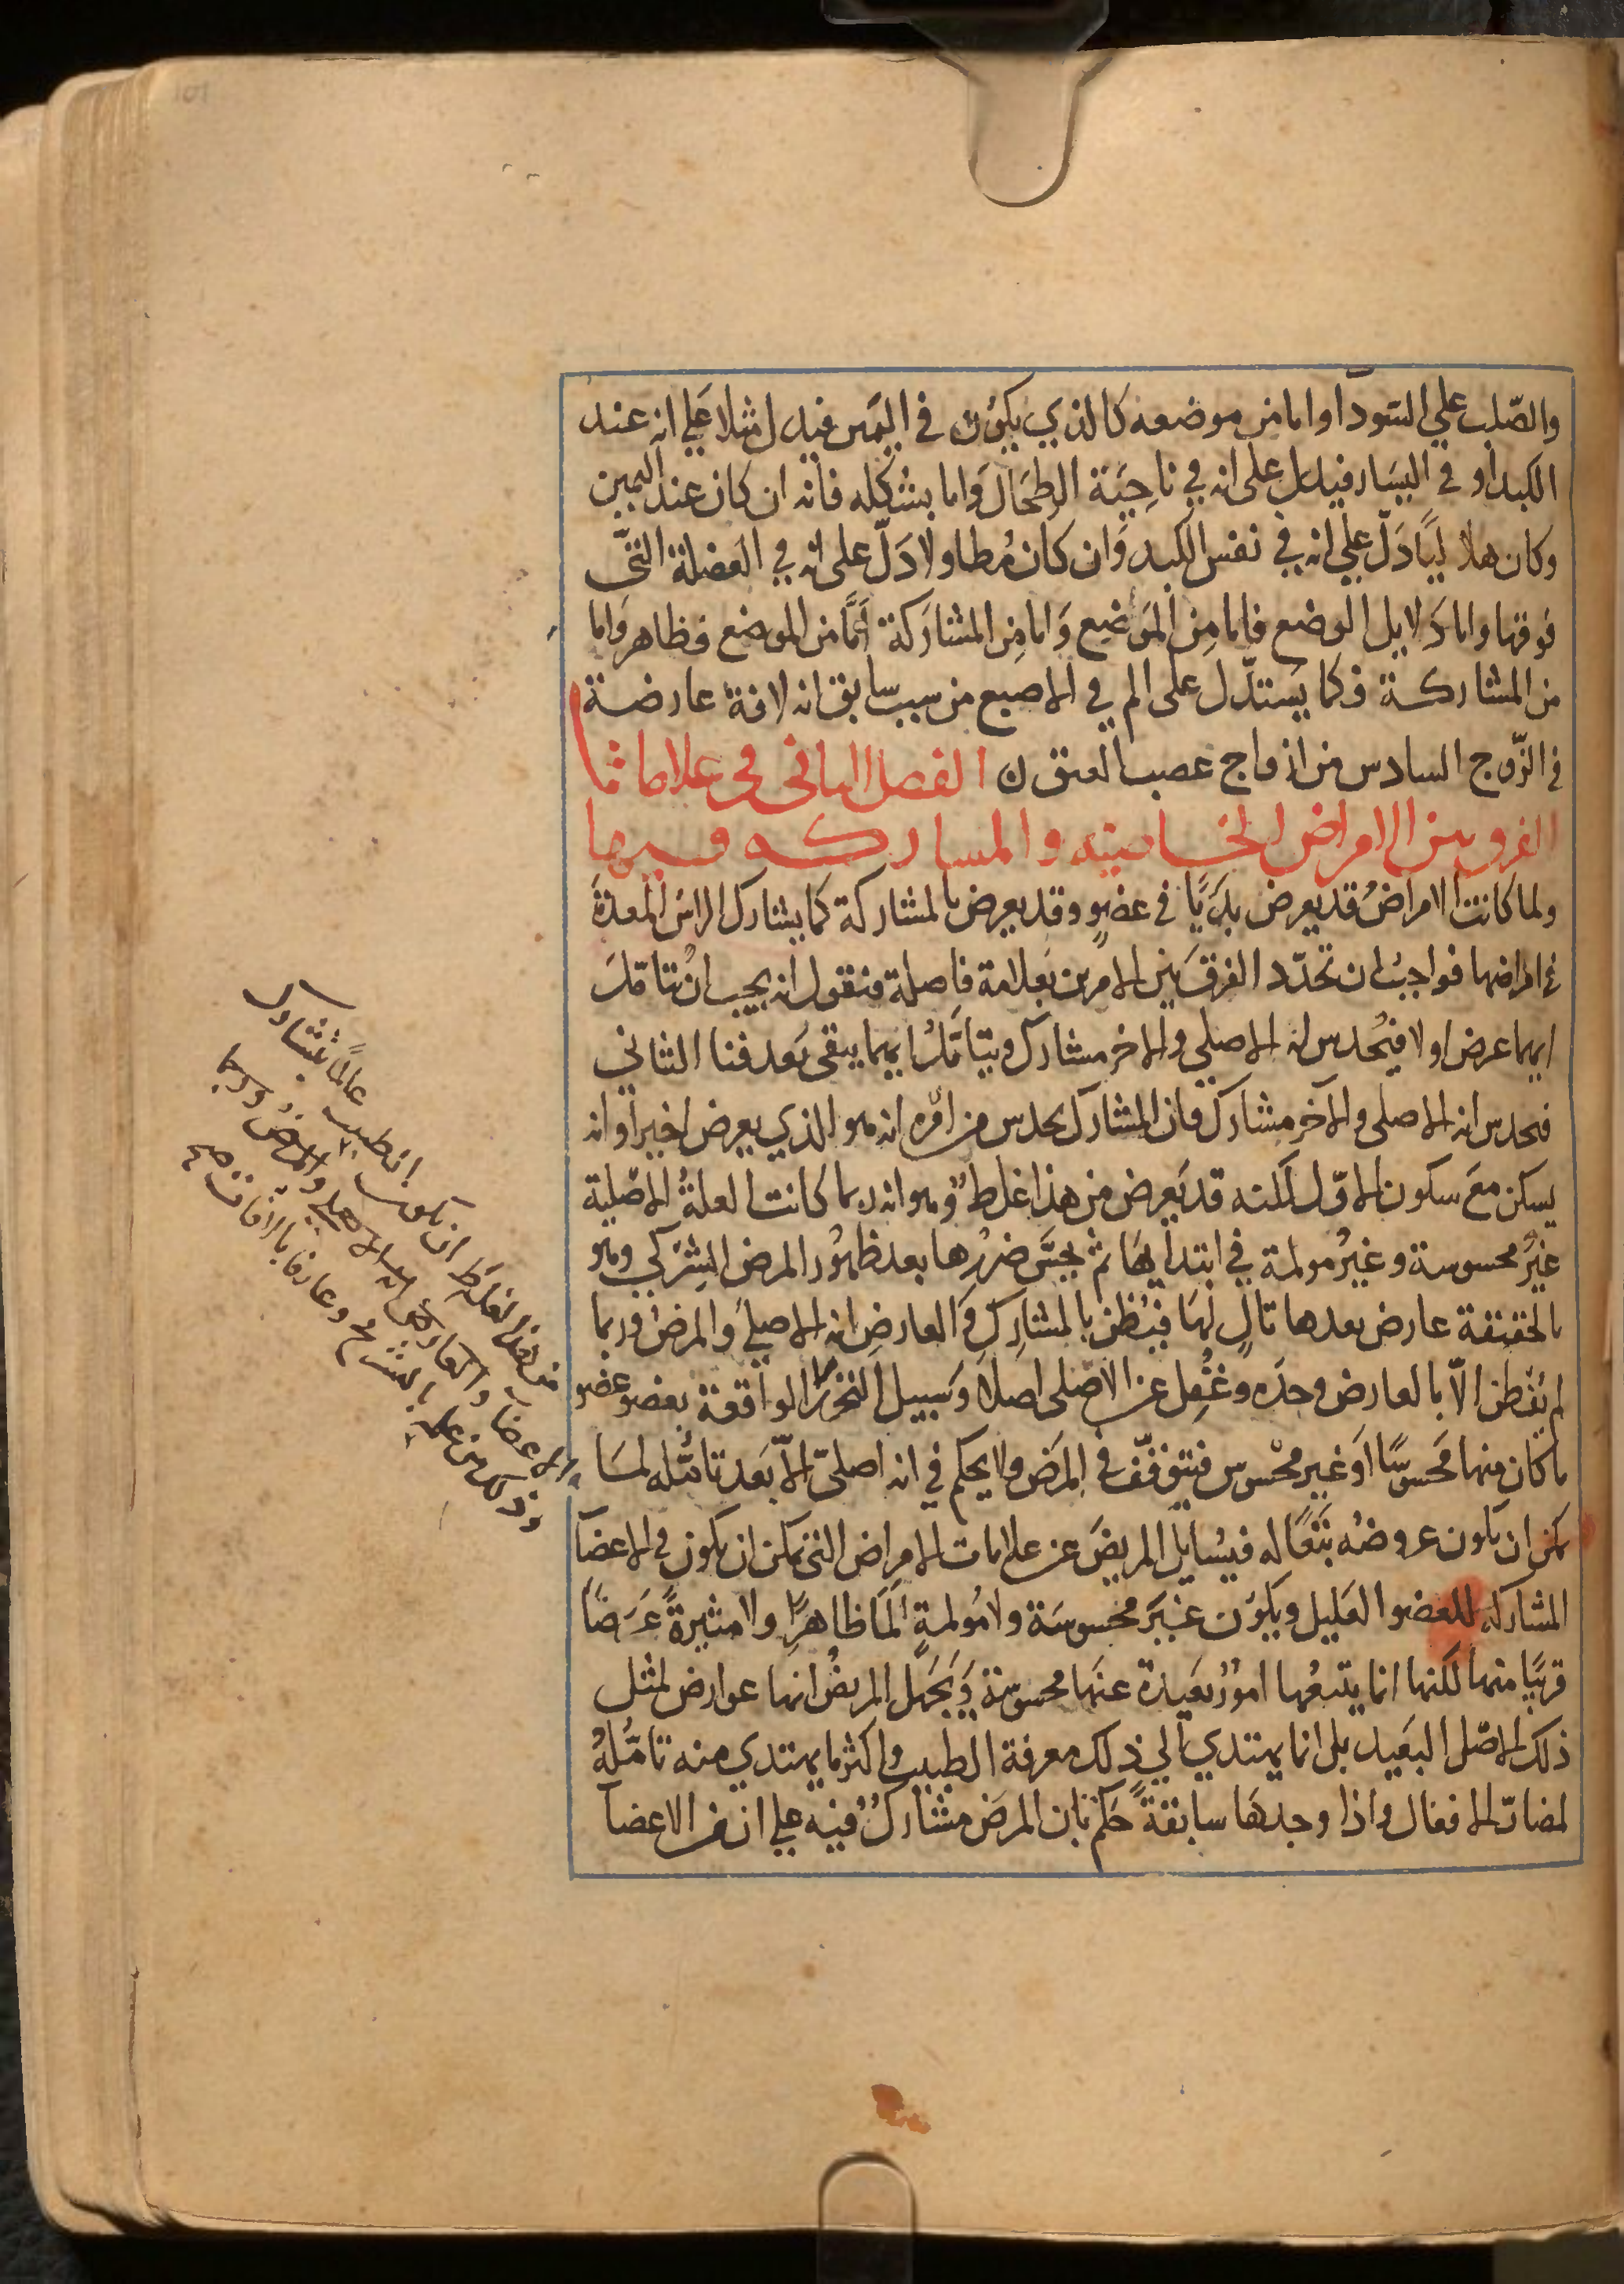 والصّلب علي السّودا واما من موضعه كالذي يكون في اليمين فيدل مثلا علي انه عند
الكبد او في اليسار فيدل على انه في ناحية الطحال واما بشكله فانه ان كان عند اليمين
وكان هلاليا دلّ علي انه في نفس الكبد وان كان مُطاولا دلّ على انه في العضلة التي
فوقها واما دلايل الوضع فاما من الموضع واما من المشاركة امّا من الموضع فظاهر واما
من المشاركة فكما يستدلّ على الم في الاصبع من سبب سابق انه لافة عارضة
في الزّوج السادس من ازواج عصب العنق ن الفصل الثاني في علامات
الفرق بين الامراض الخاصيته والمشاركه فيها
ولما كانت الامراض قد يعرض بديّا في عضوٍ وقد يعرض بالمشاركة كما يشارك الراس المعدة
في امراضها فواجب ان تحدّد الفرق بين الامرين بعلامة فاصلة فنقول انه يجب ان تتامّل
ايهما عرض اولا فيُحدس انه الاصلي والاخر مشارك ويتامّل ايهما يبقى بعد فنا الثاني
فيحدس انه الاصلي والآخر مشارك فان المشارك يحدس من امره انه هو الذي يعرض اخيرا وانه
يسكن مع سكون الاوّل لكنه قد يعرض من هذا غلط وهو انه ربما كانت العلة الاصلية
غير محسوسة وغير مولمة في ابتدايها ثم يحسّ ضررها بعد ظهور المرض الشركي وهو
بالحقيقة عارض بعدها تالٍ لها فيُظن بالمشارك والعارض انه الاصلي والمرض وربما
لم يُفطن الّا بالعارض وحده وغُفِل عن الاصلي اصلا وسبيل التحرز الواقفة بعضو عضو
ما كان منها محسوسًا او غير محسوس فيتوقّف في المرض ولا يحكم في انه اصليّ الّا بعد تامّله لما
يمكن ان يكون عروضه تبعًا له فيُسايل المريض عن علامات الامراض التي يمكن ان يكون في الاعضا
المشاركة للعضو العليل ويكون غير محسوسة ولا مُولمةٍ المًا ظاهرا ولا مثيرةً عرضًا
قريبًا منها لكنها انما يتبعُها امورٌ بعيدة عنها محسوسة ويجهل المريض انها عوارض لمثل
ذلك الاصل البعيد بل انما يهتدي الي ذلك معرفة الطبيب واكثر ما يهتدي منه تامّلهُ
لمضارّ الافعال واذا وجدها سابقةً حكم بان المرض مشارك فيه علي ان من الاعضا
من هذا الغلط ان يكون الطبيب عالمًا بمشارك
الاعضا والعارض انه الاصلي والمرض وربما
وذلك من علمه بالتشريح وعارفا بالافات صح